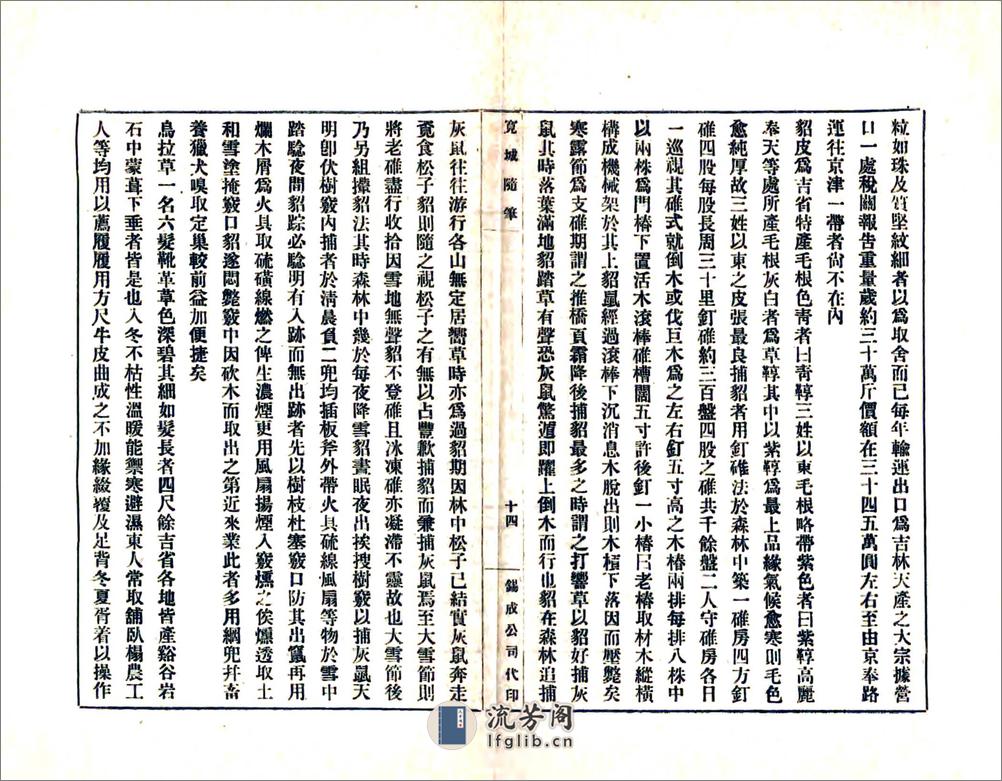 粒如珠及質堅紋細者以爲取舍而已每年輸運出口爲吉林天產之大宗據營
口一處稅關報告重量歲約三十萬斤價額在三十四五萬圓左右至由京奉路
運往京津一帶者尙不在內
貂皮爲吉省特產毛根色靑者曰靑䩗三姓以東毛根略帶紫色者曰紫䩗高麗
奉天等處所產毛根灰白者爲草䩗其中以紫䩗爲最上品緣氣候愈寒則毛色
愈純厚故三姓以東之皮張最良捕貂者用釘碓法於森林中築一碓房四方釘
碓四股每股長周三十里釘碓約三百盤四股之碓共千餘盤二人守碓房各日
一巡視其碓式就倒木或伐巨木爲之左右釘五寸高之木樁兩排每排八株中
以兩株爲門樁下置活木滾棒碓槽闊五寸許後釘一小樁曰老樁取材木縱橫
構成機械架於其上貂鼠經過滾棒下沉消息木脫出則木槓下落因而壓斃矣
寒露節爲支碓期謂之推橋頁霜降後捕貂最多之時謂之打響草以貂好捕灰
鼠其時落葉滿地貂踏草有聲恐灰鼠驚遁卽躍上倒木而行也貂在森林追捕
寬城隨筆
十四
錫成公司代印
灰鼠往往游行各山無定居嚮草時亦爲過貂期因林中松子已結實灰鼠奔走
覓食松子貂則隨之視松子之有無以占豐歉捕貂而兼捕灰鼠焉至大雪節則
將老碓盡行收拾因雪地無聲貂不登碓且氷凍碓亦凝滯不靈故也大雪節後
乃另組攆貂法其時森林中幾於每夜降雪貂晝眠夜出挨搜樹竅以捕灰鼠天
明卽伏樹竅內捕者於淸晨負二兜均插板斧外帶火具硫線風扇等物於雪中
踏騐夜間貂踪必騐明有入跡而無出跡者先以樹枝杜塞竅口防其出竄再用
爛木屑爲火具取硫磺線燃之俾生濃煙更用風扇揚煙入竅燻之俟爉透取土
和雪塗掩竅口貂遂悶斃竅中因砍木而取出之第近來業此者多用網兜幷畜
養獵犬嗅取定巢較前益加便捷矣
烏拉草一名六髮靴革草色深碧其細如髮長者四尺餘吉省各地皆產谿谷岩
石中蒙葺下垂者皆是也入冬不枯性溫暖能禦寒避濕東人常取舖臥榻農工
人等均用以薦履履用方尺牛皮曲成之不加緣綴覆及足背冬夏胥着以操作
流芳阁
lfglib.cn